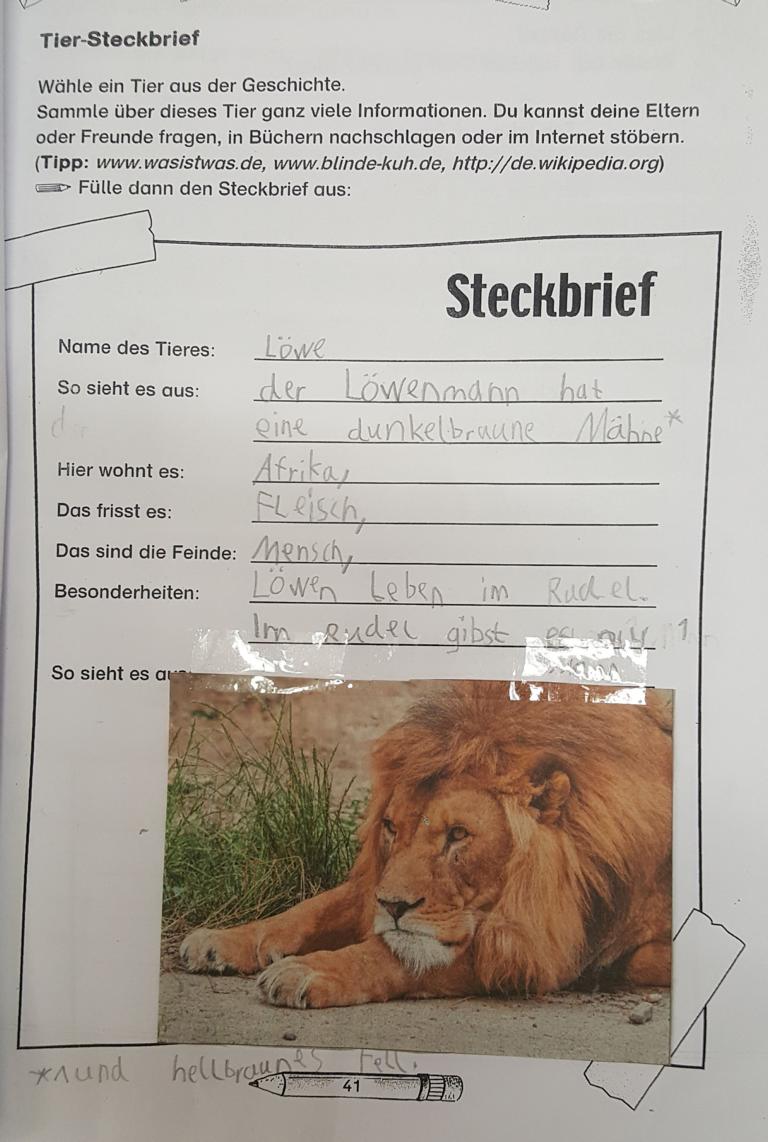 Tier-Steckbrief
Wähle ein Tier aus der Geschichte.
Sammle über dieses Tier ganz viele Informationen. Du kannst deine Eltern
oder Freunde fragen, in Büchern nachschlagen oder im Internet stöbern.
(Tipp: www.wasistwas.de, www.blinde-kuh.de, http://de.wikipedia.org)
Fülle dann den Steckbrief aus:
Steckbrief
Name des Tieres: Löwe
So sieht es aus: der Löwenmann hat
eine dunkelbraune Mähne*
Hier wohnt es: Afrika,
Das frisst es: FLeisch,
Das sind die Feinde: Mensch,
Besonderheiten: Löwen Leben im Rudel.
Im rudel gibst es nur 1
So sieht es
*1und hellbraunes Fell.
41